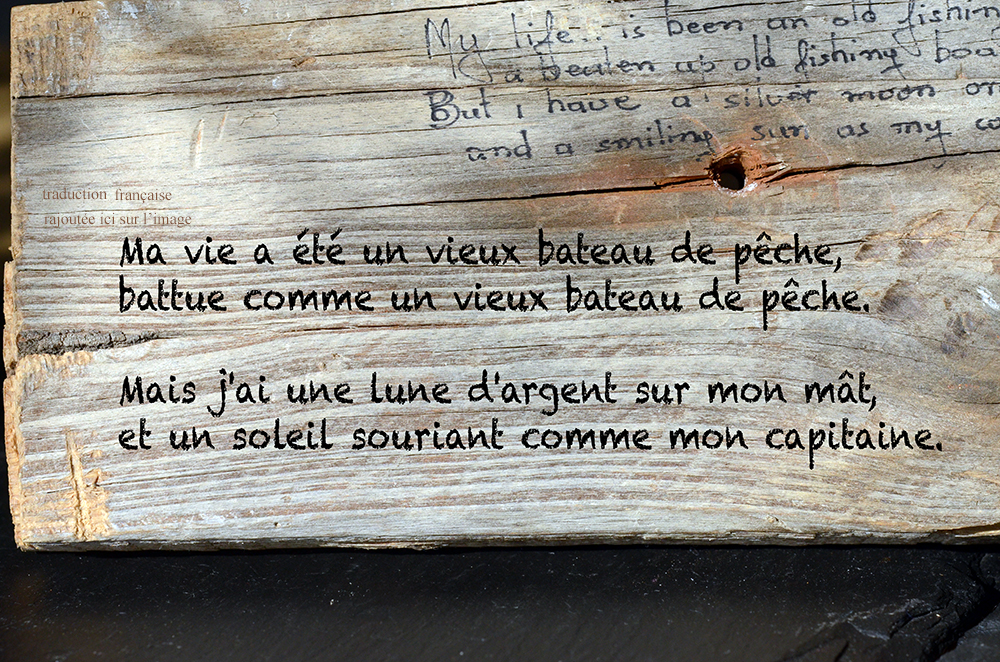 My life is been an old fishin
a beaten up old fishing boa
But i have a silver moon on
and a smiling sun as my ca
traduction française
rajoutée ici sur l'image
Ma vie a été un vieux bateau de pêche,
battue comme un vieux bateau de pêche.
Mais j'ai une lune d'argent sur mon mât,
et un soleil souriant comme mon capitaine.